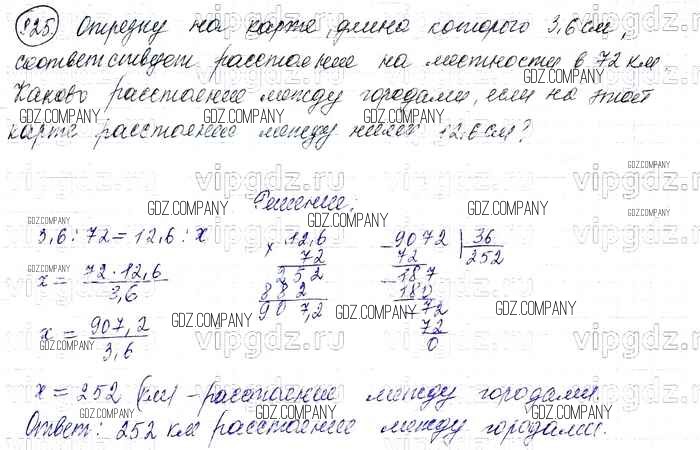 825. Отрезку на карте, длина которого 3,6 см,
соответствует расстояние на местности в 72 км.
Каково расстояние между городами, если на этой
карте расстояние между ними 12,6 см?
Решение.
3,6 : 72 = 12,6 : x
x = 72 · 12,6 / 3,6
x = 907,2 / 3,6
× 12,6
72
252
882
907,2
- 9072 | 36
72 252
- 187
180
- 72
72
0
x = 252 (км) - расстояние между городами.
Ответ: 252 км расстояние между городами.
vipgdz.ru
GDZ.COMPANY